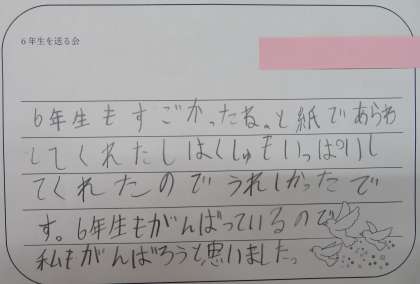 6年生を送る会
6年生もすごかったね。と紙であらわ
してくれたしはくしゅもいっぱいし
てくれたのでうれしかったで
す。6年生もがんばっているので
私もがんばろうと思いました。